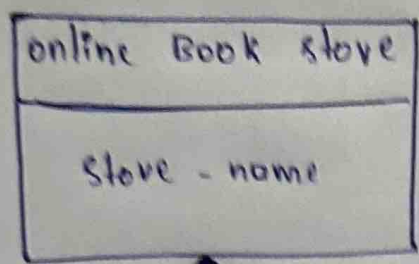 online Book store
store - name